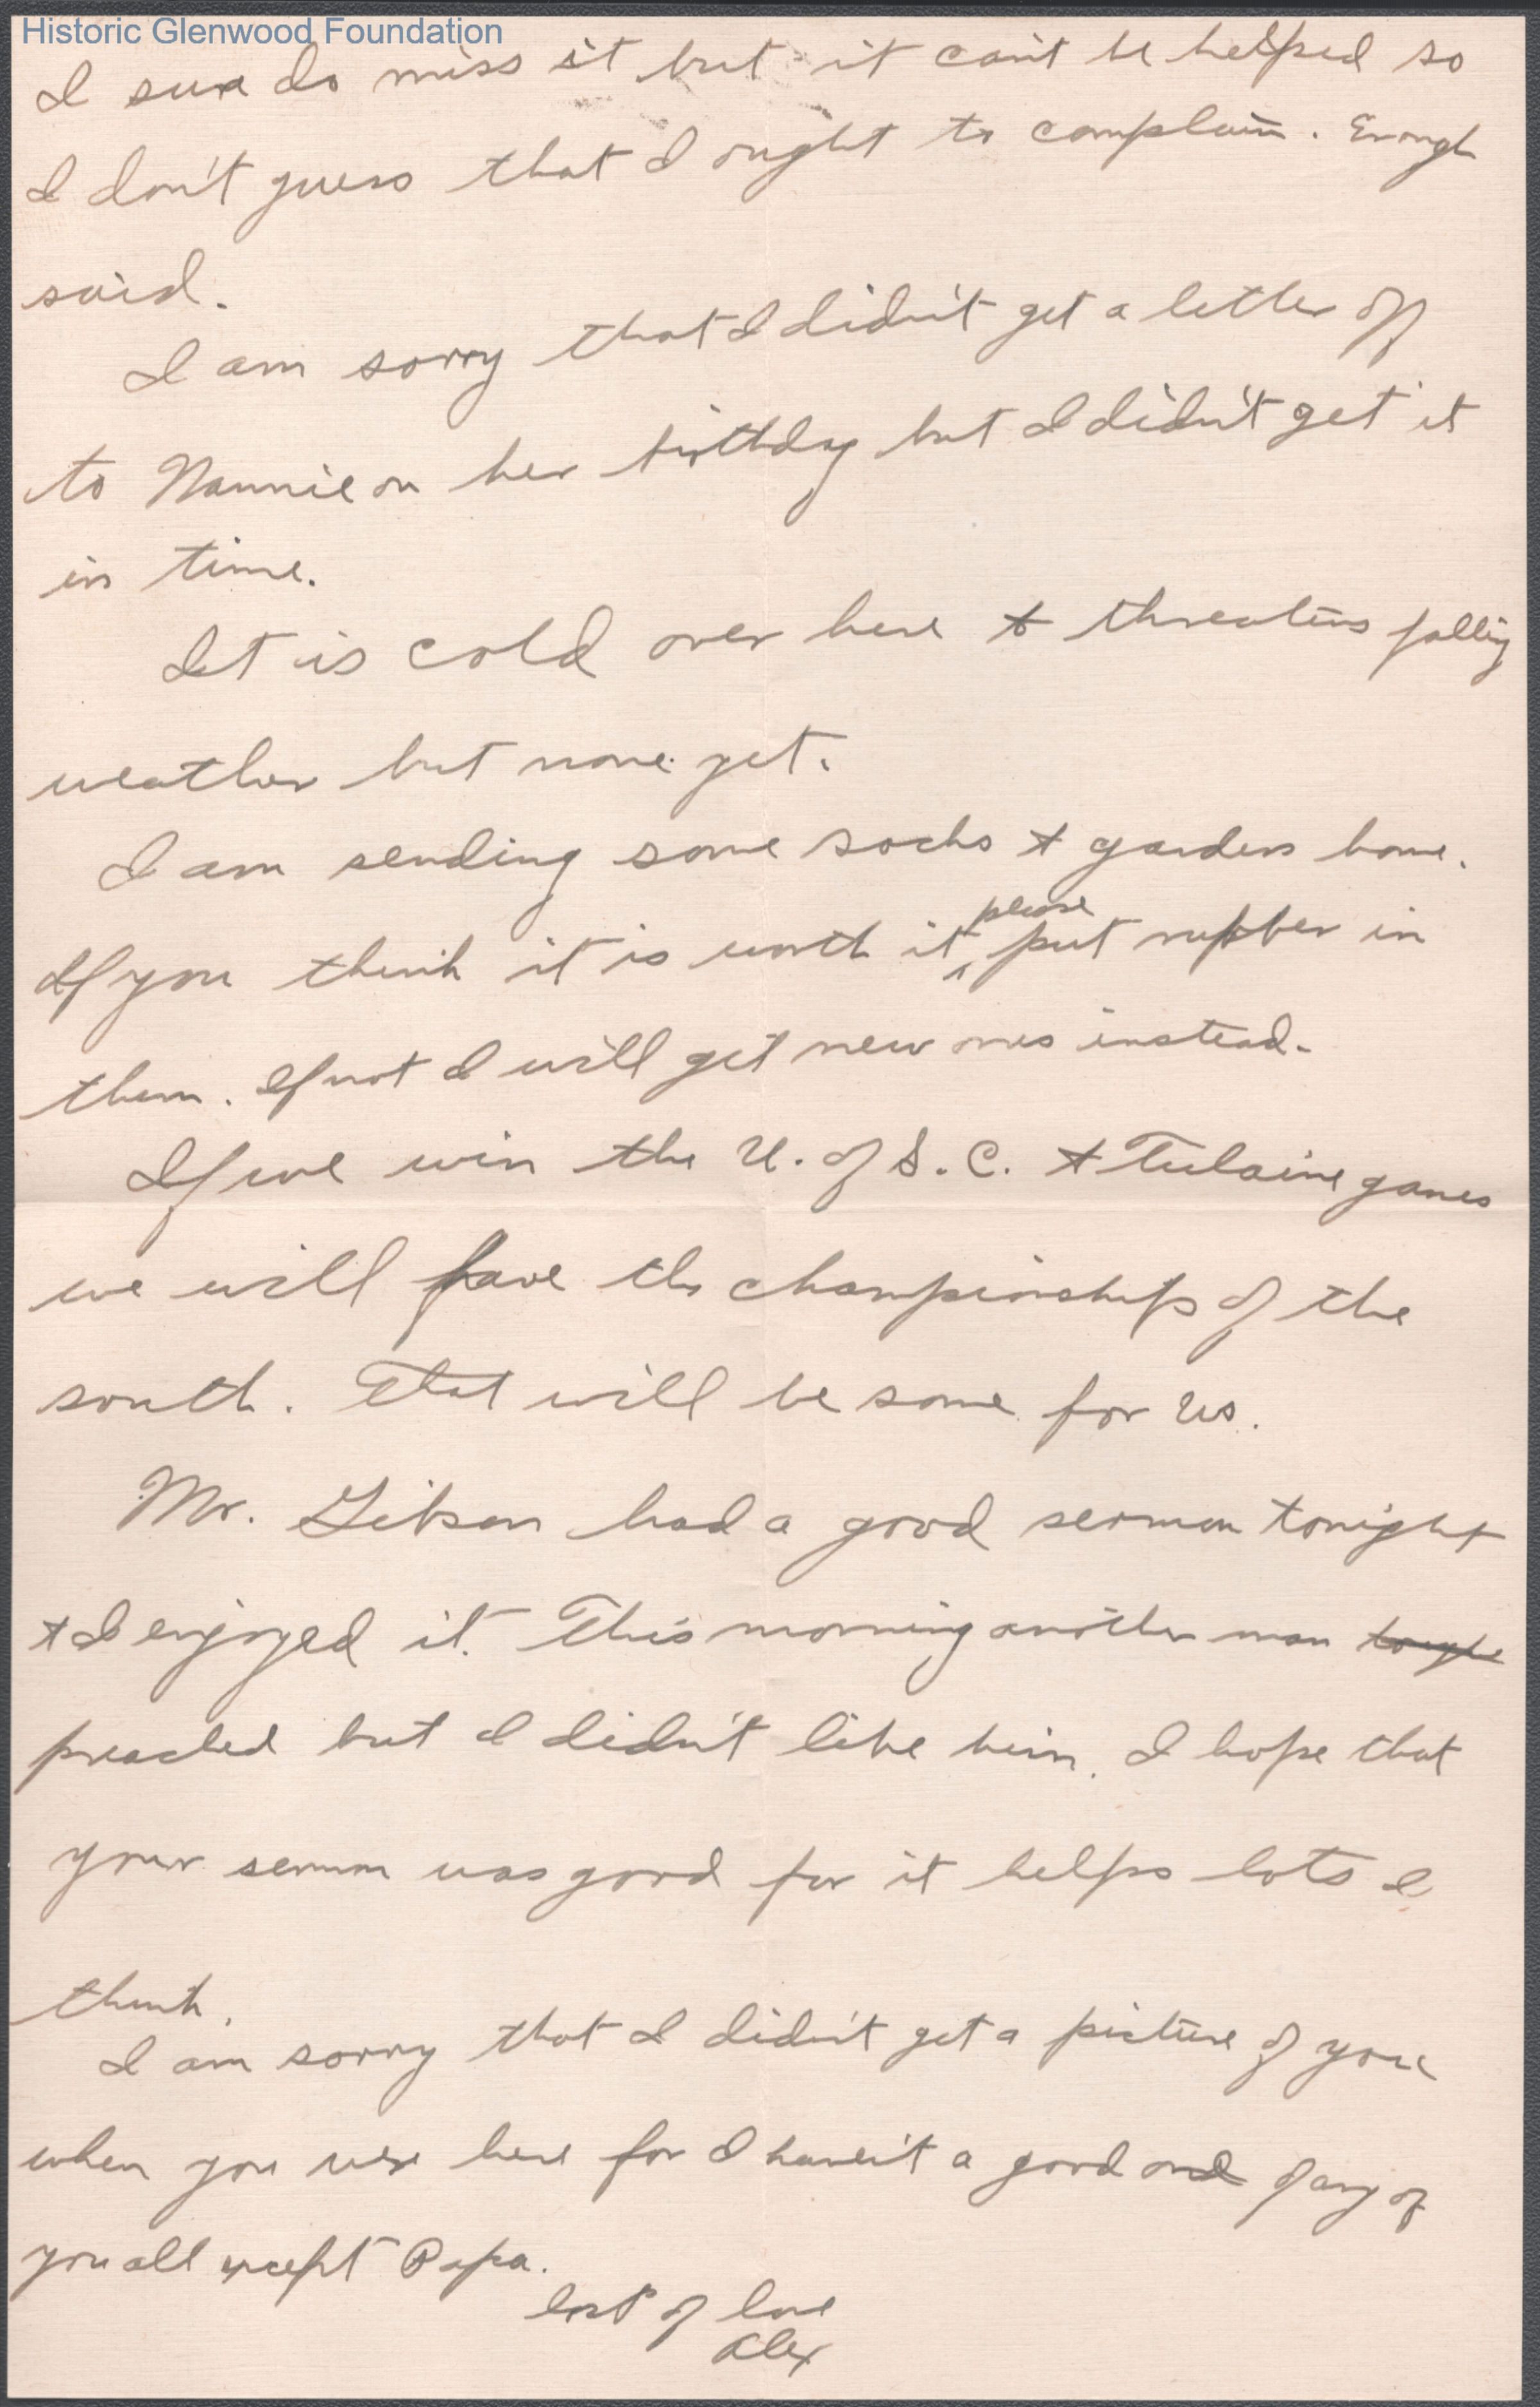 Historic Glenwood Foundation
I sure do miss it but it can't be helped so
I don't guess that I ought to complain. Enough
said.
I am sorry that I didn't get a letter off
to Nannie on her birthday but I didn't get it
in time.
It is cold over here & threatens falling
weather but none yet.
I am sending some socks & garders home.
If you think it is worth it, please put rubber in
them. If not I will get new ones instead.
If we win the U. of S. C. & Tulaine games
we will have the championships of the
south. That will be some for us.
Mr. Gibson had a good sermon tonight
& I enjoyed it. This morning another man
preached but I didn't like him. I hope that
your sermon was good for it helps lots I
think.
I am sorry that I didn't get a picture of you
when you were here for I haven't a good one of any of
you all except Papa.
lost of love
Alex